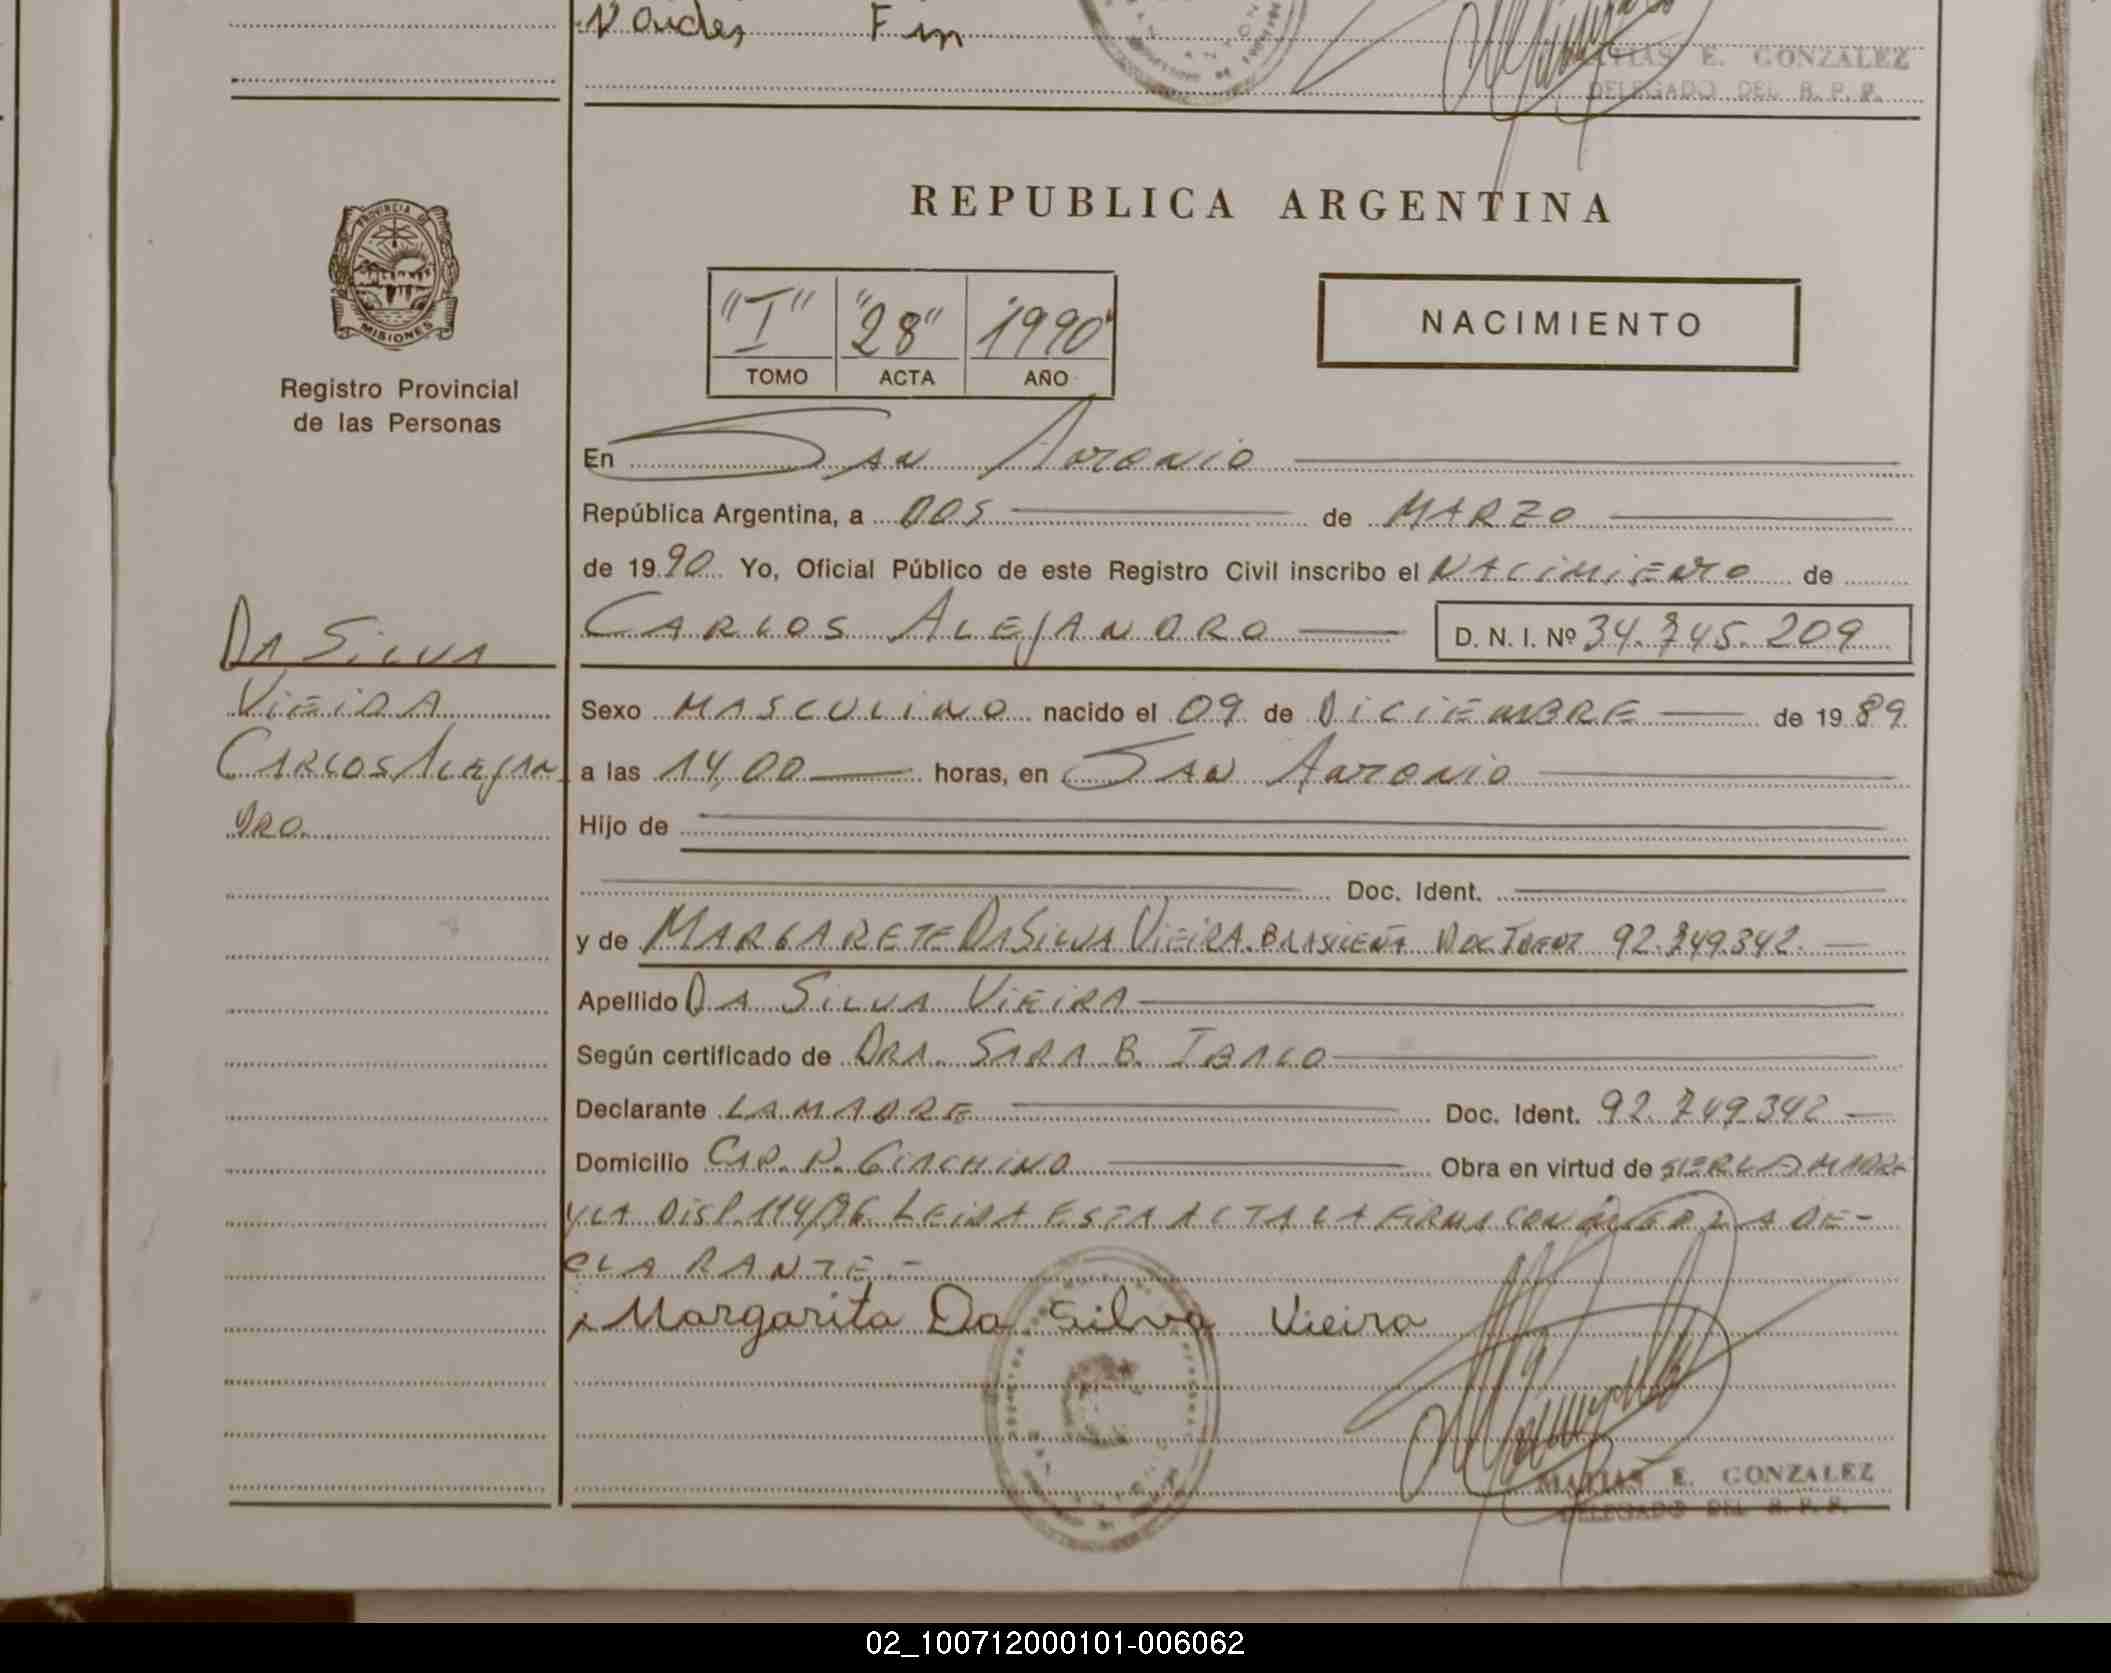 Fin
MATIAS E. GONZALEZ
DELEGADO DEL R. P. P.
PROVINCIA DE
MISIONES
Registro Provincial
de las Personas
REPUBLICA ARGENTINA
"I" "28" 1990
TOMO ACTA AÑO
NACIMIENTO
En San Antonio
República Argentina, a DOS de MARZO
de 1990 Yo, Oficial Público de este Registro Civil inscribo el NACIMIENTO de
CARLOS ALEJANDRO D. N. I. Nº 34.745.209
DA SILVA
VIEIRA
CARLOS ALEJAN
DRO.
Sexo MASCULINO nacido el 09 de DICIEMBRE de 1989
a las 14,00 horas, en SAN ANTONIO
Hijo de
Doc. Ident.
y de MARGARETE DA SILVA VIEIRA. BRASILEÑA DOC IDENT 92.749.342.
Apellido DA SILVA VIEIRA
Según certificado de DRA. SARA B.
Declarante LA MADRE Doc. Ident. 92.749.342
Domicilio CAP. P. GIACHINO Obra en virtud de SER LA MADRE
Y LA DISP. 114/86 LEIDA ESTA ACTA LA FIRMA CONMIGO LA DE-
CLARANTE.-
Margarita Da Silva Vieira
MATIAS E. GONZALEZ
DELEGADO DEL R. P. P.
02_100712000101-006062